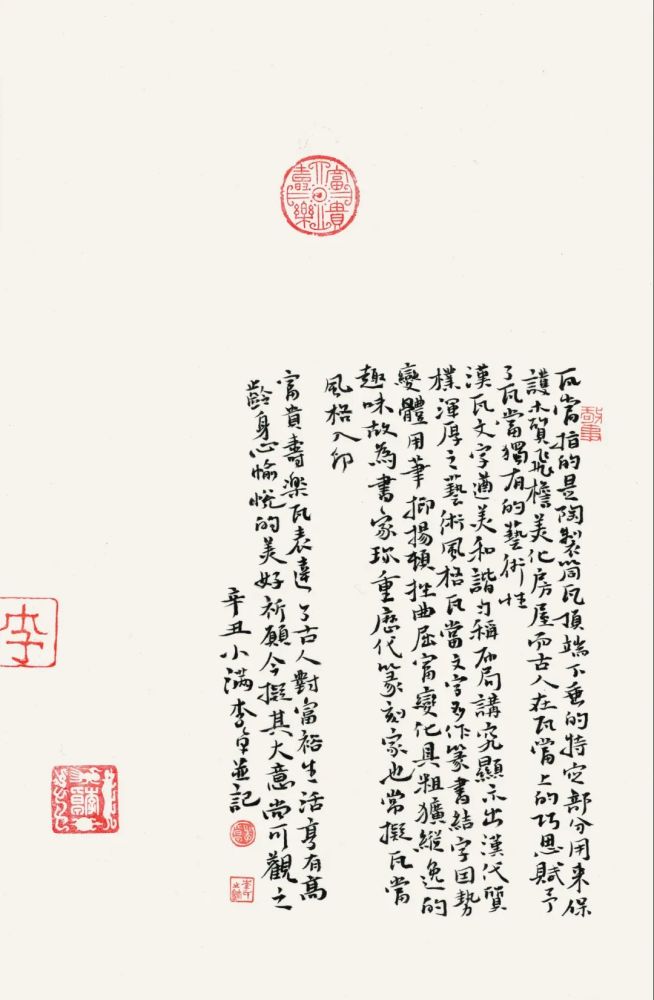 富貴壽樂
瓦當指的是陶製筒瓦頂端下垂的特定部分用来保
護木質飛檐美化房屋而古人在瓦當上的巧思賦予
了瓦當獨有的藝術性
漢瓦文字遒美和諧勻稱布局講究顯示出漢代質
樸渾厚之藝術風格瓦當文字多作篆書結字因勢
變體用筆抑揚頓挫曲屈富變化具粗獷縱逸的
趣味故為書家珍重歷代篆刻家也常擬瓦當
風格入印
富貴壽樂瓦表達了古人對富裕生活享有高
齡身心愉悅的美好祈願今擬其大意尚可觀之
辛丑小滿李卓並記
李